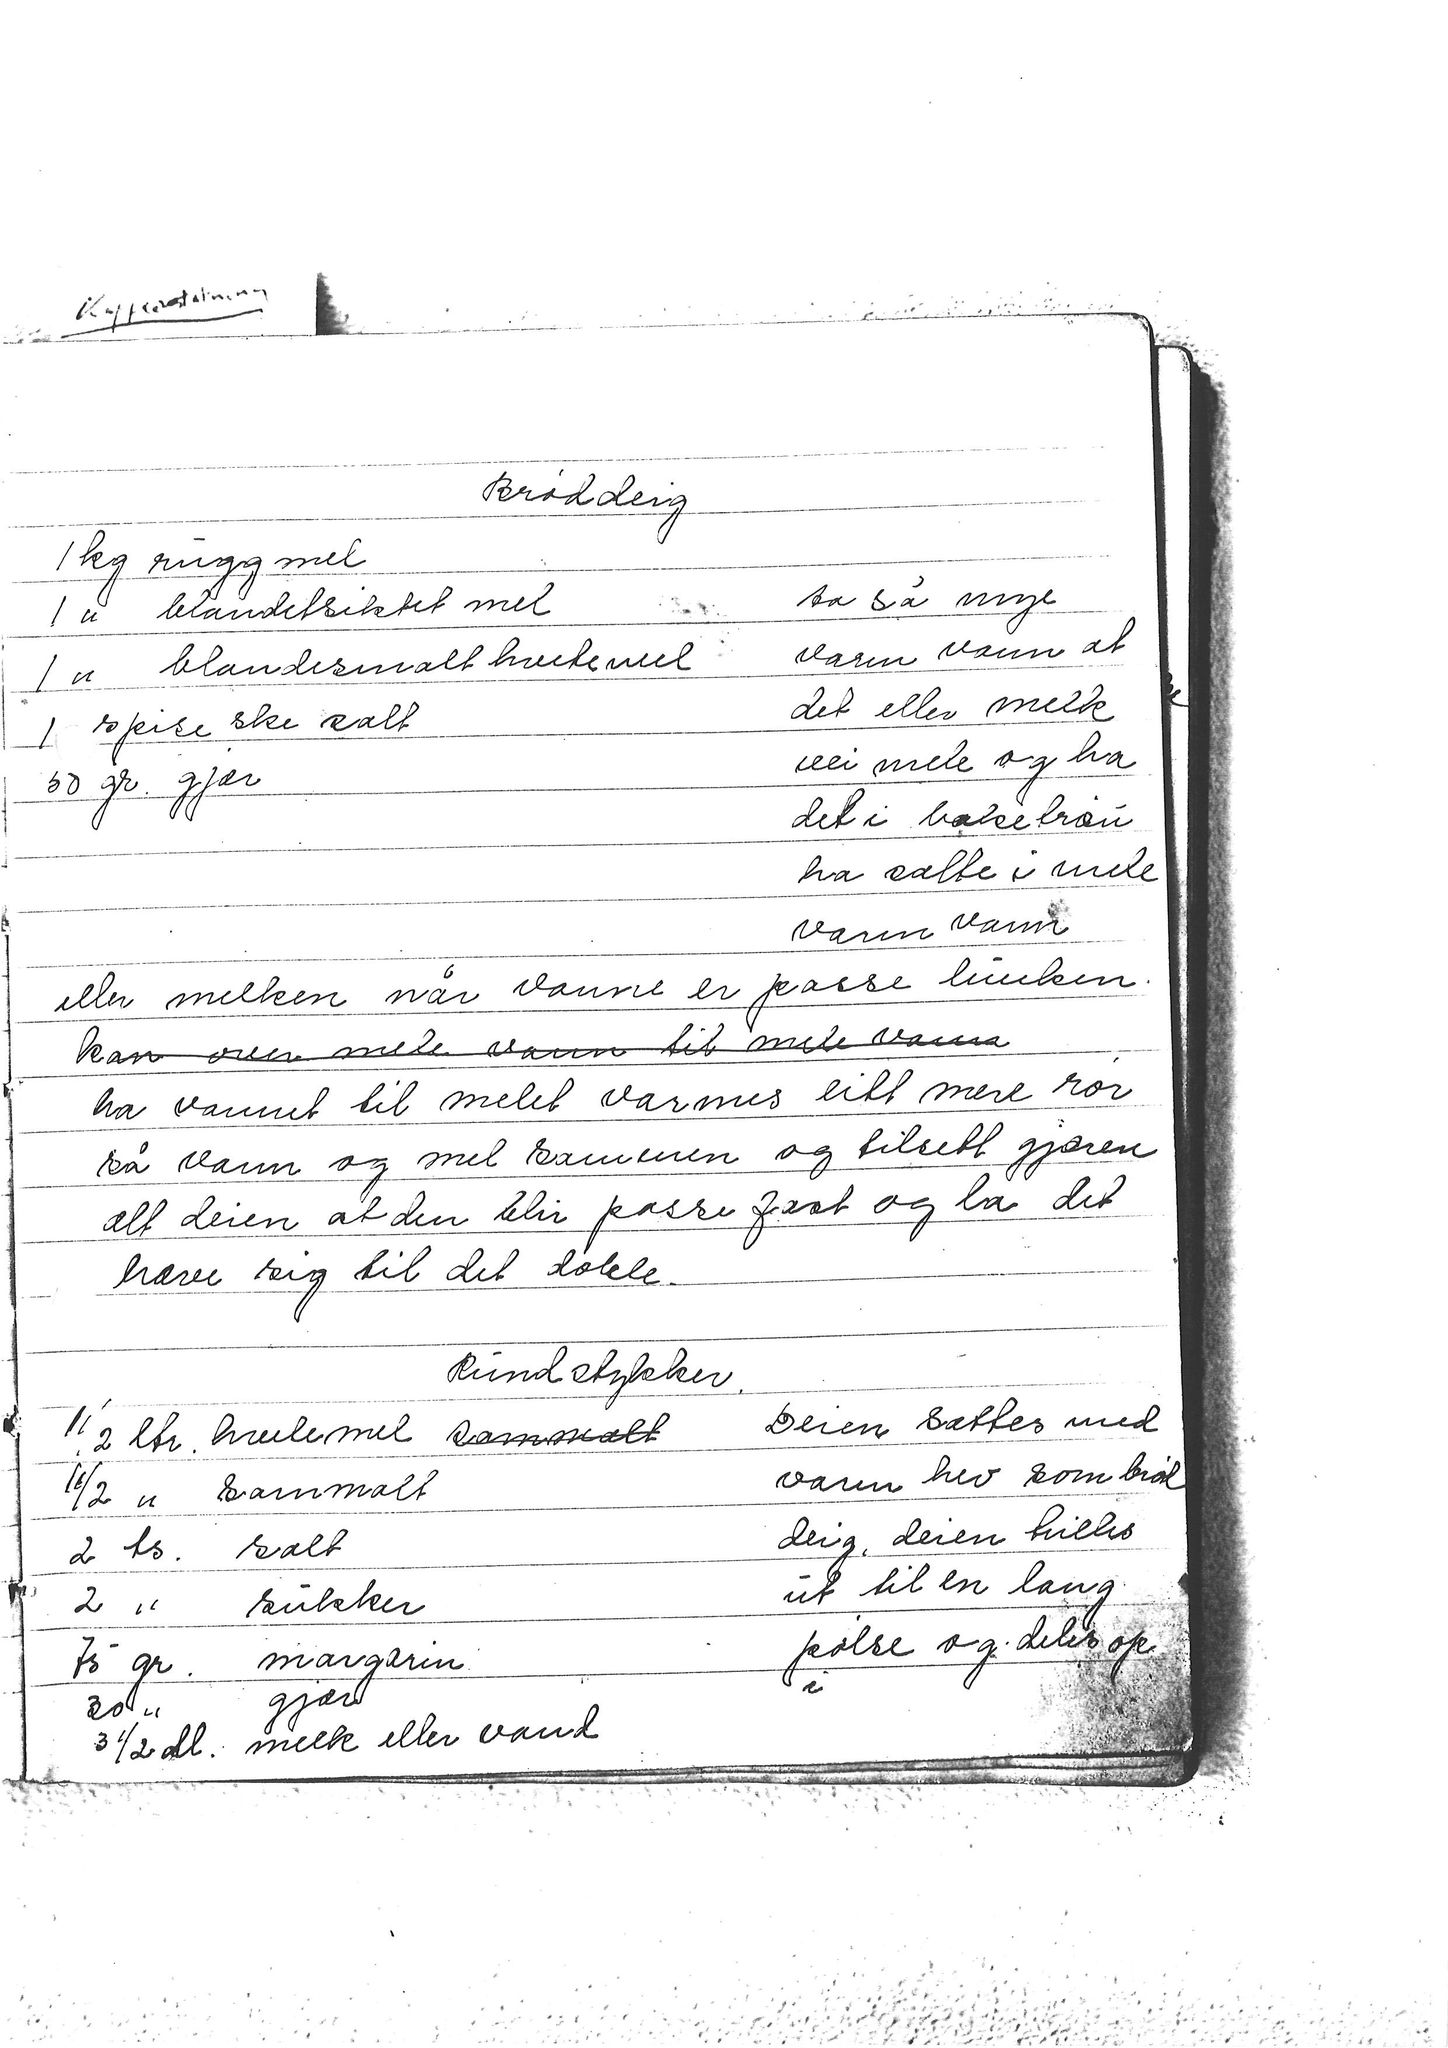 Brød deig
1 kg rugg mel
1 " blandetsiktet mel
1 " blandesmalt hvetemel
1 spise ske salt
50 gr. gjær
ta så mye
varm vann at
det eller melk
vei mele og ha
det i baketrau
ha salte i mele
varm vann
eller melken når vanne er passe lunken.
kan over mele vann til mele vann
ha vannet til melet varmes litt mere rør
så vann og mel sammen og tilsett gjæren
ælt deien at den blir passe fast og la det
hæve sig til det doble.
Rundstykker.
1 1/2 ltr. hvetemel sammalt
1 1/2 " sammalt
2 ts. salt
2 " sukker
75 gr. margarin
30 " gjær
3 1/2 dl. melk eller vand
Deien sættes med
varm hev som brød
deig. deien trilles
ut til en lang
pølse og deles op
i